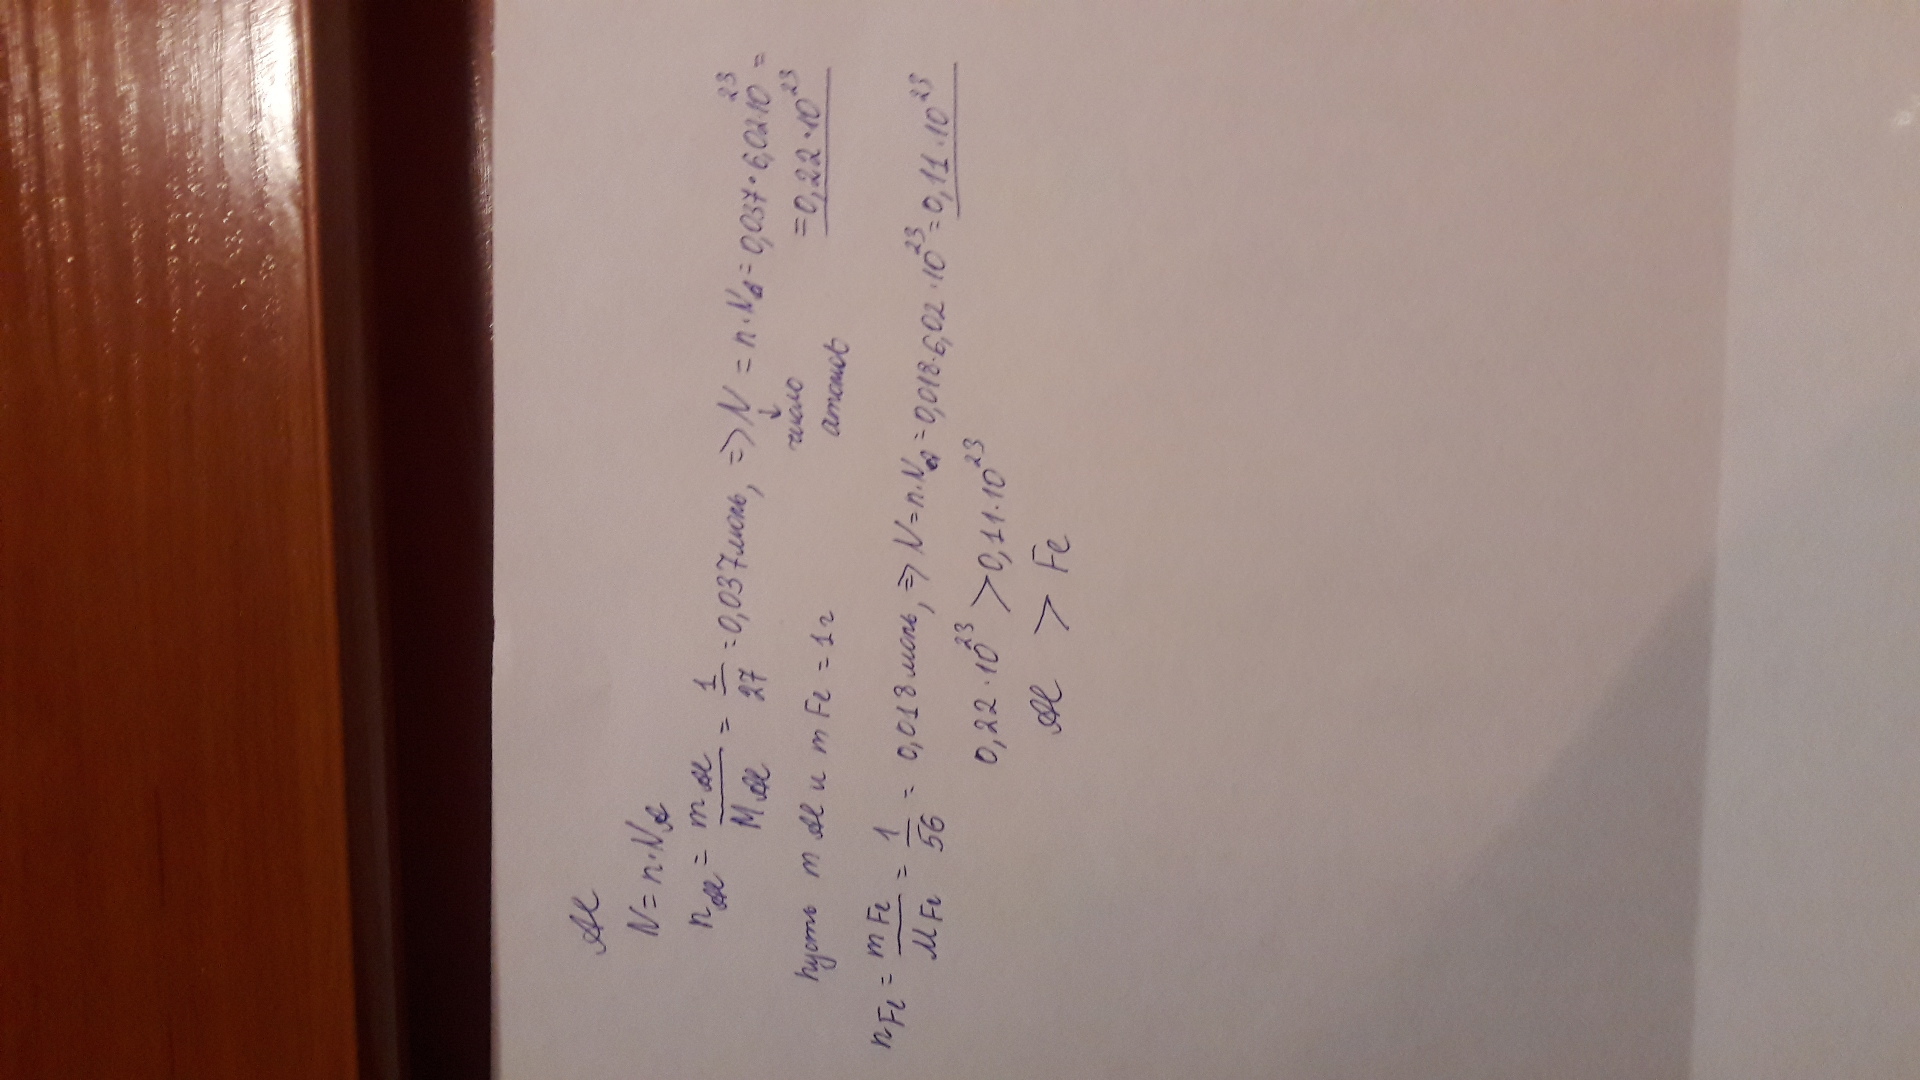 Al
N = n·N_A
n_Al = m_Al / M_Al = 1/27 = 0,037 моль, => N = n·N_A = 0,037·6,02·10^23 =
= 0,22·10^23
↓
число
атомов
пусть m Al и m Fe = 1 г
n_Fe = m_Fe / M_Fe = 1/56 = 0,018 моль, => N = n·N_A = 0,018·6,02·10^23 = 0,11·10^23
0,22·10^23 > 0,11·10^23
Al > Fe